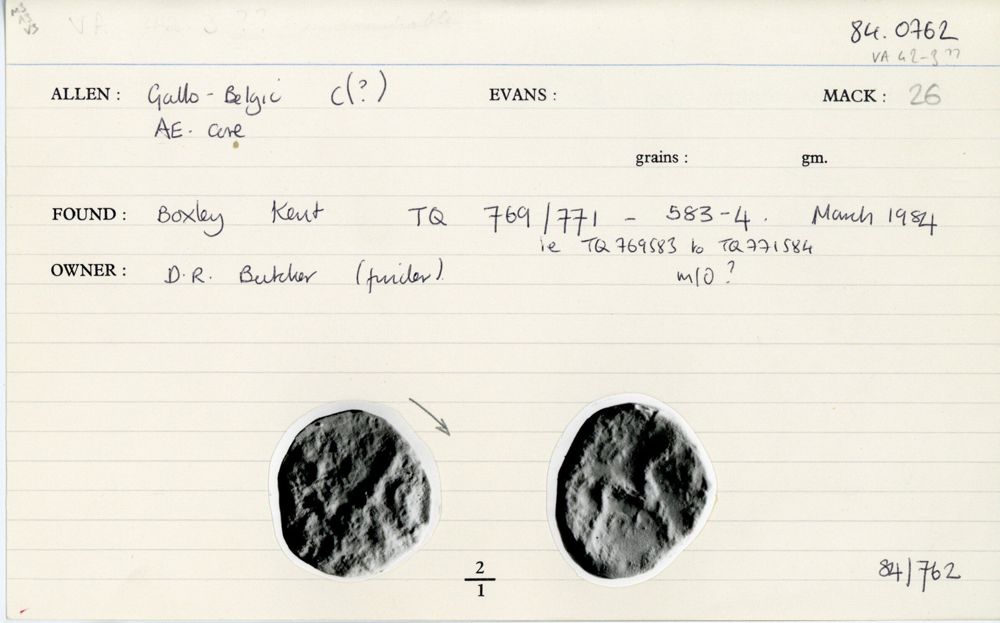 84.0762
VA 42-3 ??
ALLEN : Gallo-Belgic C(?) EVANS : MACK : 26
AE. core
grains : gm.
FOUND : Boxley Kent TQ 769/771 - 583-4. March 1984
ie TQ 769583 to TQ 771584
OWNER : D.R. Butcher (finder) m/D ?
2
1
84/762